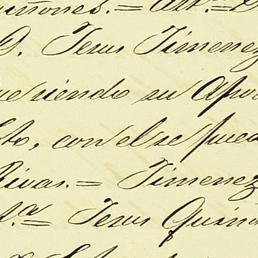 uiñones. =
D. Jesus Jimenez
siendo su Apo
to, con el se pued
Rivas. = Jimenez
S.ª = Jesus Quiño